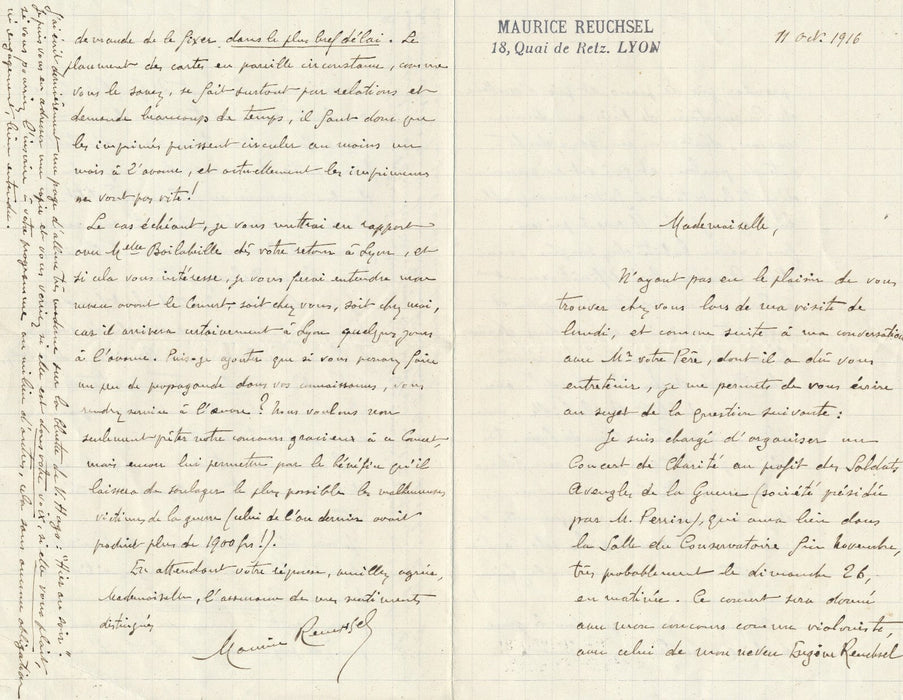 MAURICE REUCHSEL
18, Quai de Retz. LYON
11 Oct. 1916
Mademoiselle,
N'ayant pas eu le plaisir de vous
trouver chez vous lors de ma visite de
lundi, et comme suite à ma conversation
avec Mr votre Père, dont il a dû vous
entretenir, je me permets de vous écrire
au sujet de la question suivante :
Je suis chargé d'organiser un
Concert de Charité au profit des Soldats
Aveugles de la Guerre (société présidée
par M. Perrin), qui aura lieu dans
la Salle du Conservatoire fin novembre,
très probablement le dimanche 26,
en matinée. Ce concert sera donné
avec mon concours comme violoniste,
avec celui de mon neveu Eugène Reuchsel
demande de le fixer dans le plus bref délai. Le
placement des cartes en pareille circonstance, comme
vous le savez, se fait surtout par relations et
demande beaucoup de temps, il faut donc que
les imprimés puissent circuler au moins un
mois à l'avance, et actuellement les imprimeurs
ne vont pas vite !
Le cas échéant, je vous mettrai en rapport
avec Melle Boilabeille dès votre retour à Lyon, et
si cela vous intéresse, je vous ferai entendre mon
neveu avant le Concert, soit chez vous, soit chez moi,
car il arrivera certainement à Lyon quelques jours
à l'avance. Puis-je ajouter que si vous pensez faire
un peu de propagande dans vos connaissances, vous
rendrez service à l'œuvre ? Nous voulons non
seulement prêter notre concours gracieux à ce Concert,
mais encore lui permettre par le bénéfice qu'il
laissera de soulager le plus possible les malheureuses
victimes de la guerre (celui de l'an dernier avait
produit plus de 1900 frs !).
En attendant votre réponse, veuillez agréer,
Mademoiselle, l'assurance de mes sentiments
distingués
Maurice Reuchsel
J'ai écrit dernièrement une page d'allure très moderne sur la Chute de V. Hugo : "Hier au soir."
Je puis vous en adresser une copie et vous verriez si elle est dans votre voix; si elle vous plaît,
vous pourriez l'inscrire à votre programme au milieu d'autres, cela sans aucune obligation
ni engagement, bien entendu.